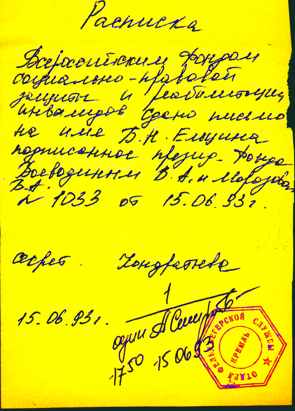 Расписка
Всероссийским фондом
социально-правовой
защиты и реабилитации
инвалидов сдано письмо
на имя Б.Н. Ельцина
подписанное презид. Фонда
Воеводиным В.А. и Морозова
В.А.
№ 1033 от 15.06.93г.
Секрет. Кондратьева
1
15.06.93г.
один
17 50 15 06 93
ОТДЕЛ ФЕЛЬДЪЕГЕРСКОЙ СЛУЖБЫ
КРЕМЛЬ